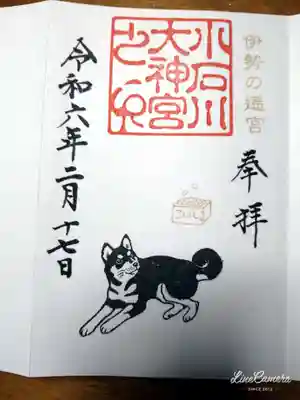 伊勢の遥宮
奉拝
小石川
大神宮
之印
令和六年二月十七日
LineCamera